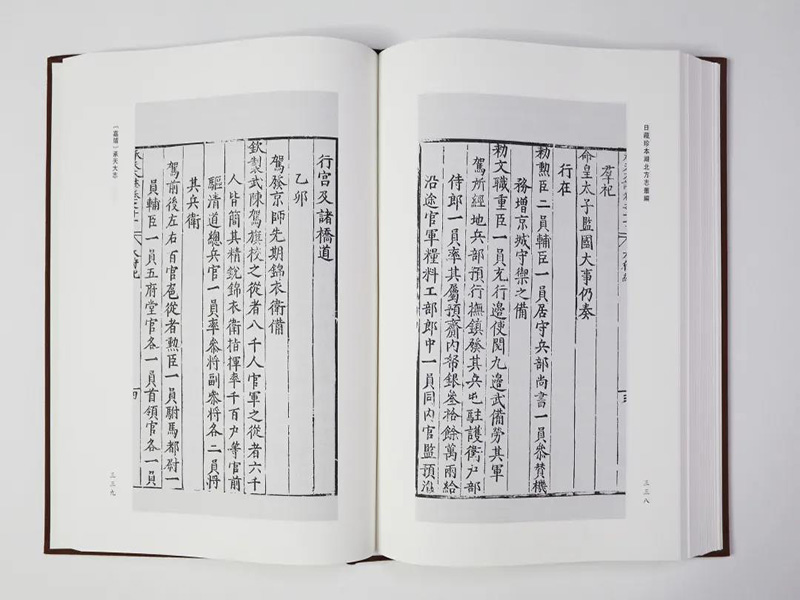 日藏珍本湖北方志編
三三八
羣祀
命皇太子監國大事仍奏
行在
勑勲臣二員輔臣一員居守兵部尚書一員叅賛機
務增京城守禦之備
勑文職重臣一員充行邊使閱九邊武備勞其軍
駕所經地兵部預行撫鎮發其兵屯駐護衛户部
侍郎一員率其屬預齎内帑銀叁拾餘萬兩給
沿途官軍糧料工部郎中一員同内官監預沿
行宫及諸橋道
乙卯
駕發京師先期錦衣衛備
欽製武陳駕旗校之從者八千人官軍之從者六千
人皆簡其精銳錦衣衛指揮率千百户等官前
驅清道總兵官一員率叅將副叅將各二員將
其兵衛
駕前後左右百官扈從者勲臣一員駙馬都尉一
員輔臣一員五府堂官各一員首領官各一員
四
〔嘉靖〕承天大志
三三九